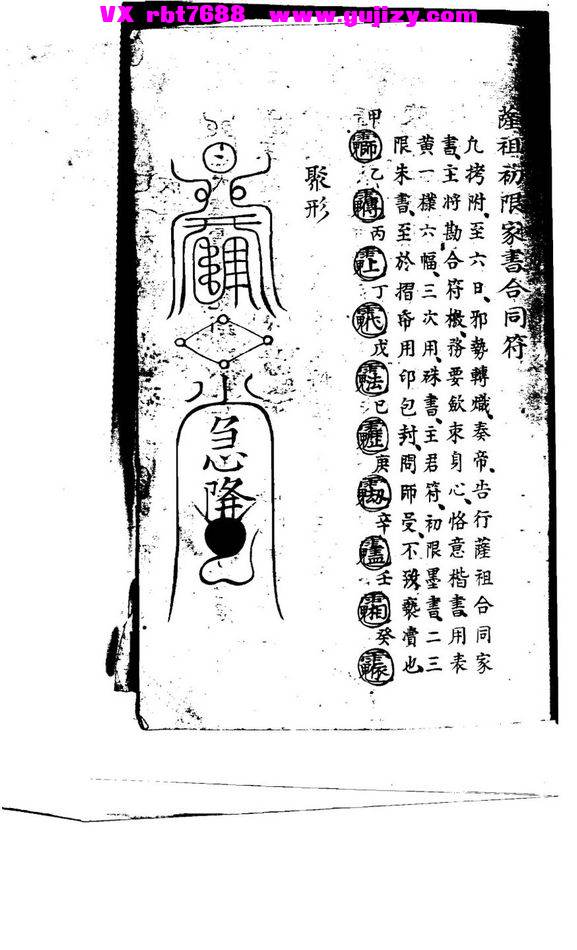 VX rbt7688 www.gujizy.com
薩祖初限家書合同符
凢拷附、至六日、邪勢轉熾、奏帝、告行薩祖合同家
書、主將勘合符檄、務要歛束身心、恪意楷書、用表
黄一樣六幅、三次用、珠書、主君符、初限墨書、二三
限朱書、至於摺帋用印包封、問師受、不褻瀆也、
甲 乙 丙 丁 戊 己 庚 辛 壬 癸
聚形
急降